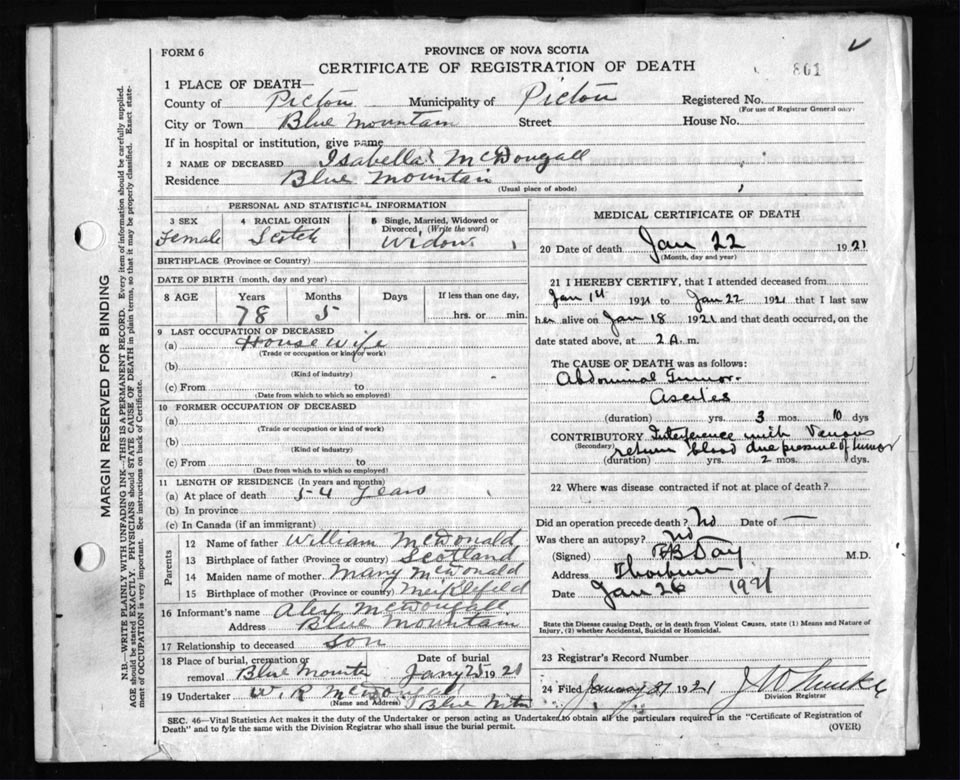 FORM 6
PROVINCE OF NOVA SCOTIA
CERTIFICATE OF REGISTRATION OF DEATH
861
1 PLACE OF DEATH—
County of Pictou Municipality of Pictou Registered No.
(For use of Registrar General only)
City or Town Blue Mountain Street House No.
If in hospital or institution, give name
2 NAME OF DECEASED Isabella McDougall
Residence Blue Mountain
(Usual place of abode)
PERSONAL AND STATISTICAL INFORMATION
3 SEX 4 RACIAL ORIGIN 5 Single, Married, Widowed or Divorced, (Write the word)
Female Scotch Widow
BIRTHPLACE (Province or Country)
DATE OF BIRTH (month, day and year)
8 AGE Years Months Days If less than one day,
78 5 hrs. or min.
9 LAST OCCUPATION OF DECEASED
(a) House Wife
(Trade or occupation or kind of work)
(b)
(Kind of industry)
(c) From to
(Date from which to which so employed)
10 FORMER OCCUPATION OF DECEASED
(a)
(Trade or occupation or kind of work)
(b)
(Kind of industry)
(c) From to
(Date from which to which so employed)
11 LENGTH OF RESIDENCE (In years and months)
(a) At place of death 54 years
(b) In province
(c) In Canada (if an immigrant)
Parents
12 Name of father William McDonald
13 Birthplace of father (Province or country) Scotland
14 Maiden name of mother Mary McDonald
15 Birthplace of mother (Province or country) Meiklfield
16 Informant's name Alex McDougall
Address Blue Mountain
17 Relationship to deceased Son
18 Place of burial, cremation or removal Blue Mountn Date of burial Jany 25 1921
19 Undertaker W R McDougal
(Name and Address) Blue Mtn
MEDICAL CERTIFICATE OF DEATH
20 Date of death Jan 22 1921
(Month, day and year)
21 I HEREBY CERTIFY, that I attended deceased from
Jan 14 1921 to Jan 22 1921 that I last saw
her alive on Jan 18 1921 and that death occurred, on
date stated above, at 2 A. m.
The CAUSE OF DEATH was as follows:
Abdominal Tumor.
Ascites
(duration) yrs. 3 mos. 10 dys
CONTRIBUTORY Interference with Venous
(Secondary) return blood due pressure of tumor
(duration) yrs. 2 mos. dys.
22 Where was disease contracted if not at place of death?
Did an operation precede death? No Date of —
Was there an autopsy? No
(Signed) Day M.D.
Address Thorburn
Date Jan 26 1921
State the Disease causing Death, or in death from Violent Causes, state (1) Means and Nature of Injury, (2) whether Accidental, Suicidal or Homicidal.
23 Registrar's Record Number
24 Filed January 27 1921
Division Registrar
SEC. 46—Vital Statistics Act makes it the duty of the Undertaker or person acting as Undertaker to obtain all the particulars required in the "Certificate of Registration of
Death" and to fyle the same with the Division Registrar who shall issue the burial permit. (OVER)
MARGIN RESERVED FOR BINDING
N.B.—WRITE PLAINLY WITH UNFADING INK—THIS IS A PERMANENT RECORD. Every item of information should be carefully supplied.
AGE should be stated EXACTLY. PHYSICIANS should STATE CAUSE OF DEATH in plain terms, so that it may be properly classified. Exact state-
ment of OCCUPATION is very important. See instructions on back of Certificate.